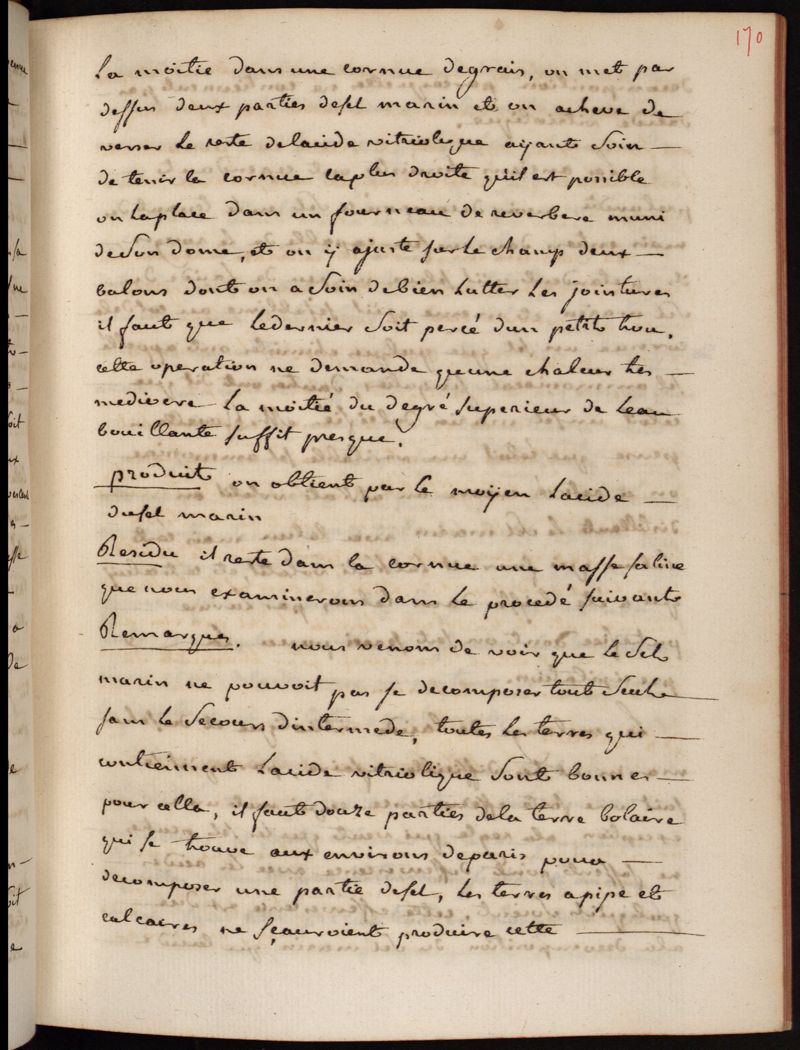 170
La moitie dans une cornue degrais, on met par
dessus deux parties desel marin et on acheve de
verser le reste delacide vitriolique ayant Soin —
de tenir la cornue laplus droite quil est possible
on laplace dans un fourneau de reverbere muni
deSon dome, et on ÿ ajuste surle champ deux —
balons dont on a Soin debien Lutter Les jointures
il faut que ledernier Soit percé dun petit trou.
cette operation ne demande quune chaleur tres —
mediocre La moitié du degré Superieur de Leau
bouillante suffit presque.
produit on obtient par le moyen Lacide —
dusel marin
Residu il reste dans la cornue une masse saline
que nous examinerons dans Le procedé suivant
Remarques. nous venons de voir que le Sel
marin ne pouvoit pas se decomposer tout Seul
sans le Secours dintermede, toutes Les terres qui —
contiennent Lacide vitriolique Sont bonnes —
pour cella, il faut douze parties dela terre bolaire
qui se trouve aux environs deparis pour —
decomposer une partie desel, Les terres apipe et
calcaires ne sçauroient produire cette —